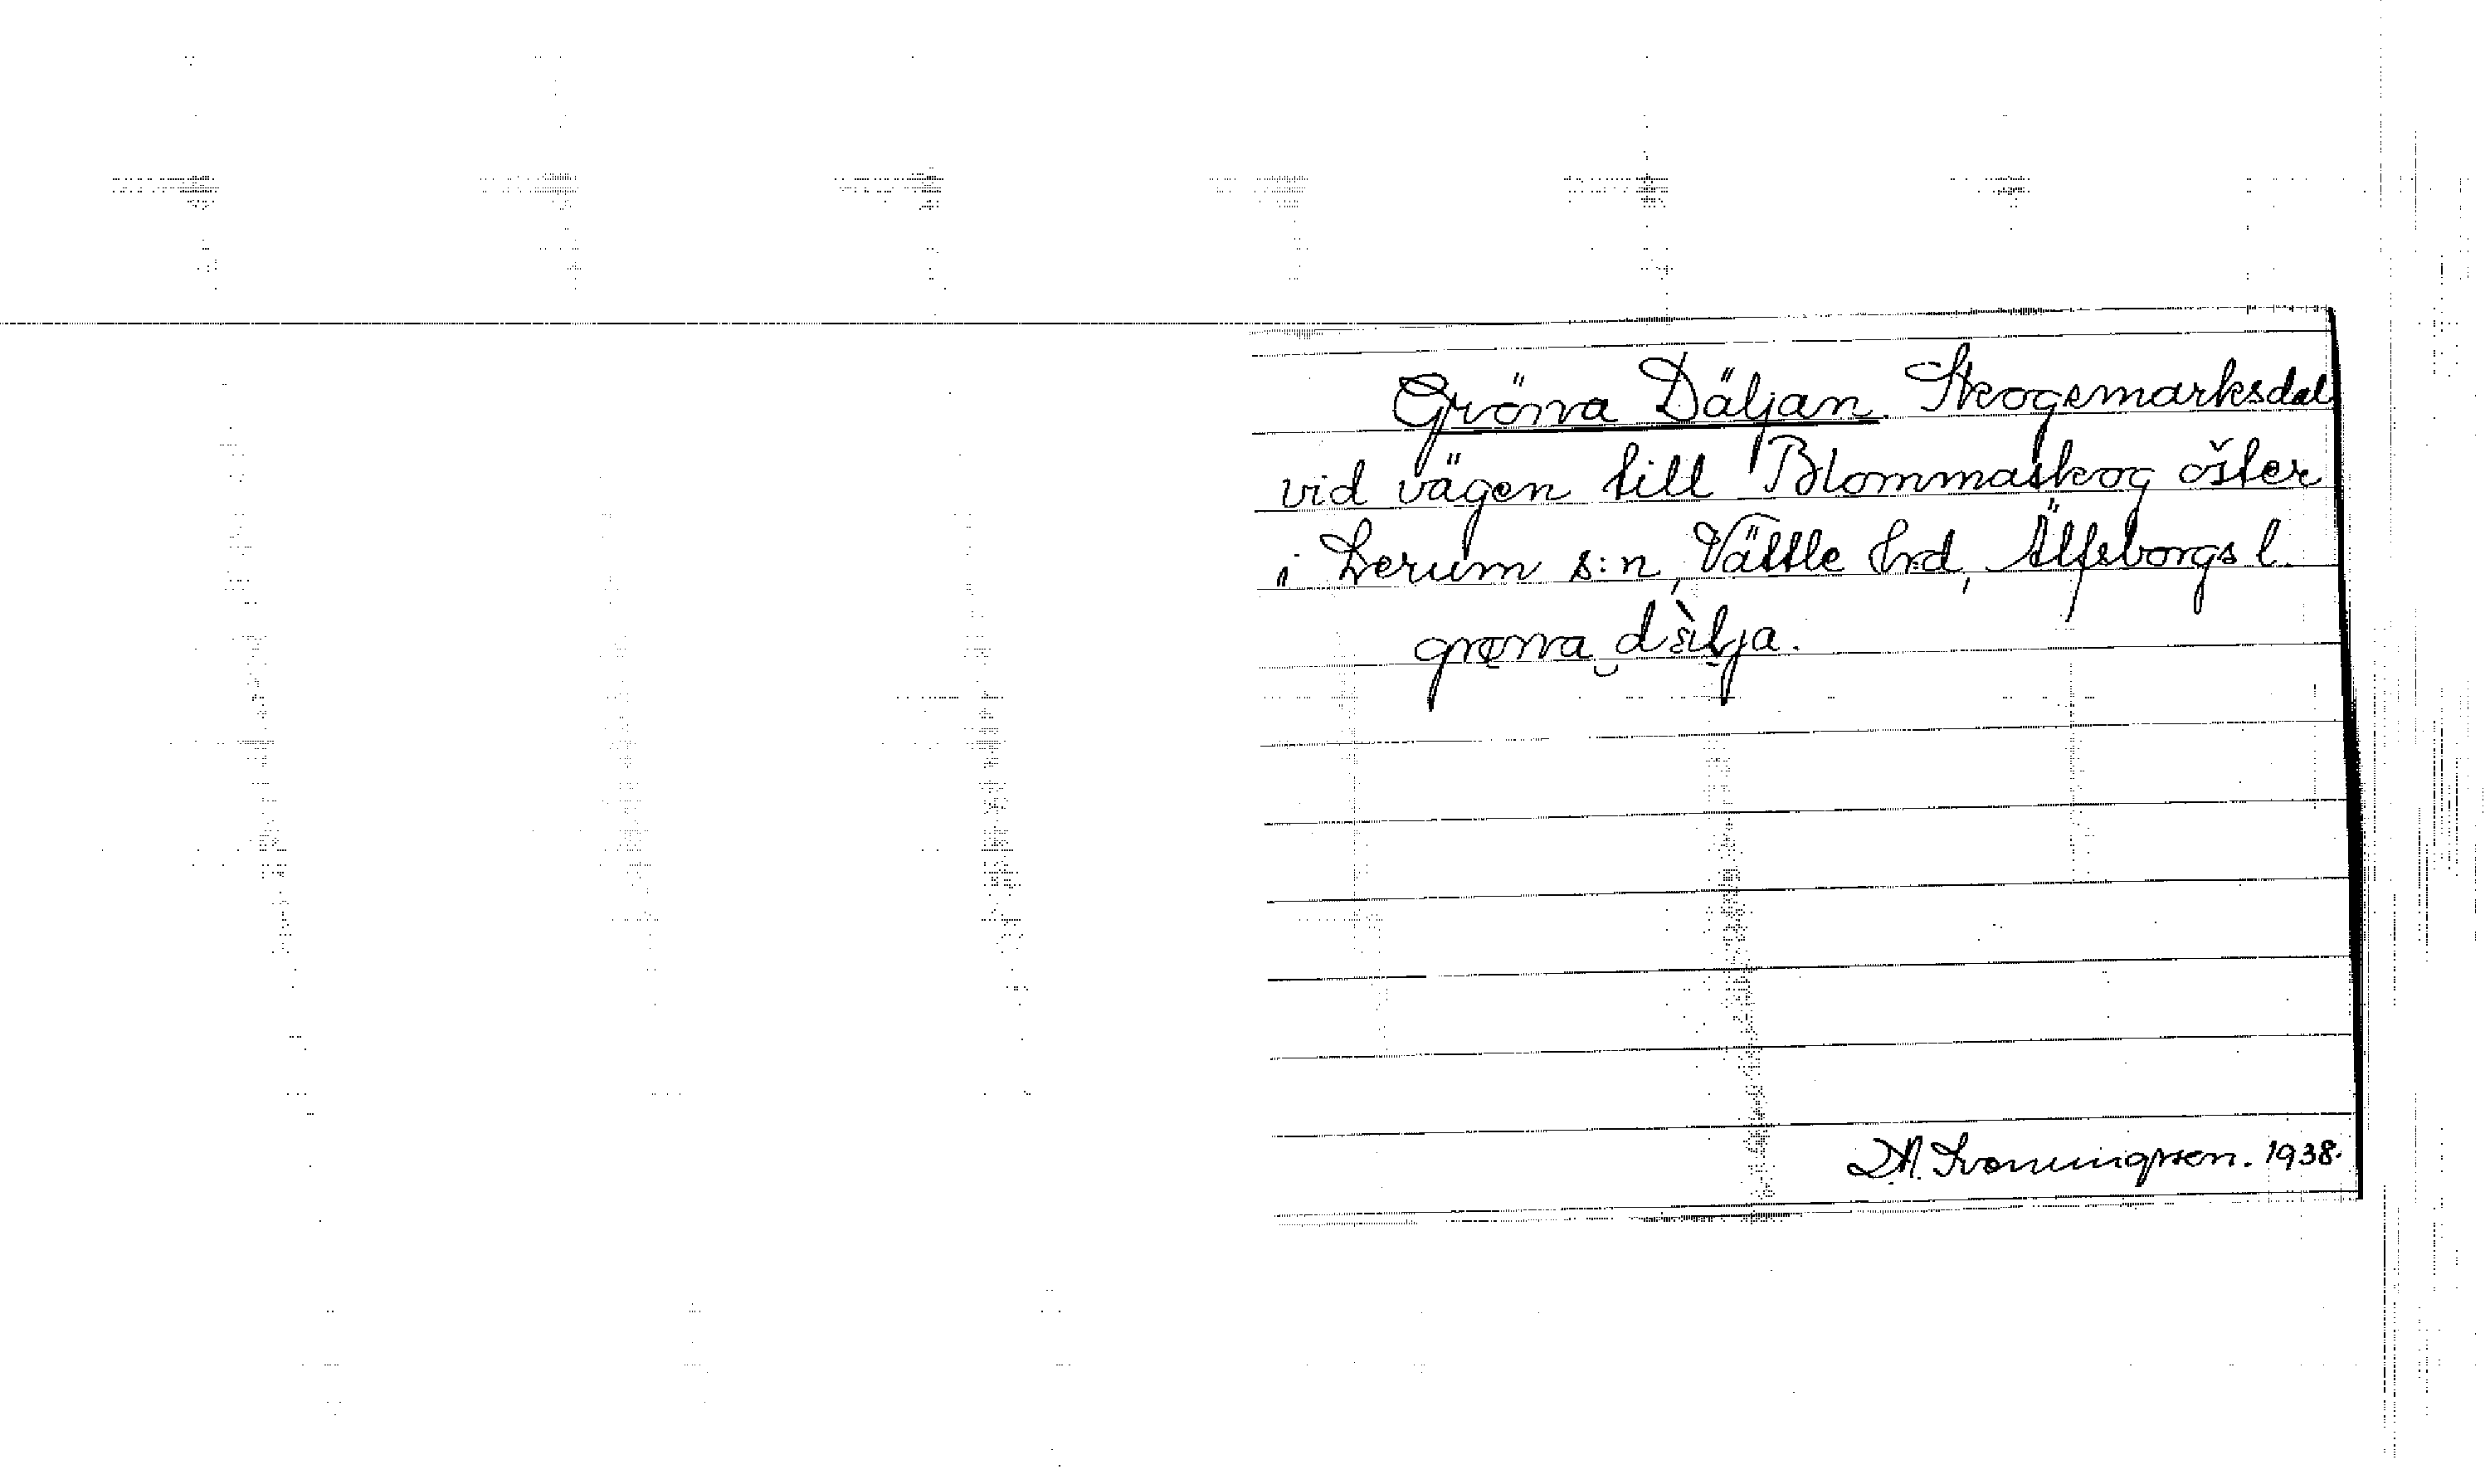 Gröna Däljan. Skogsmarksdal
vid vägen till Blommaskog öster
i Lerum s:n, Vättle hrd, Älfsborgs l.
grøna dä̀lja.
1938.